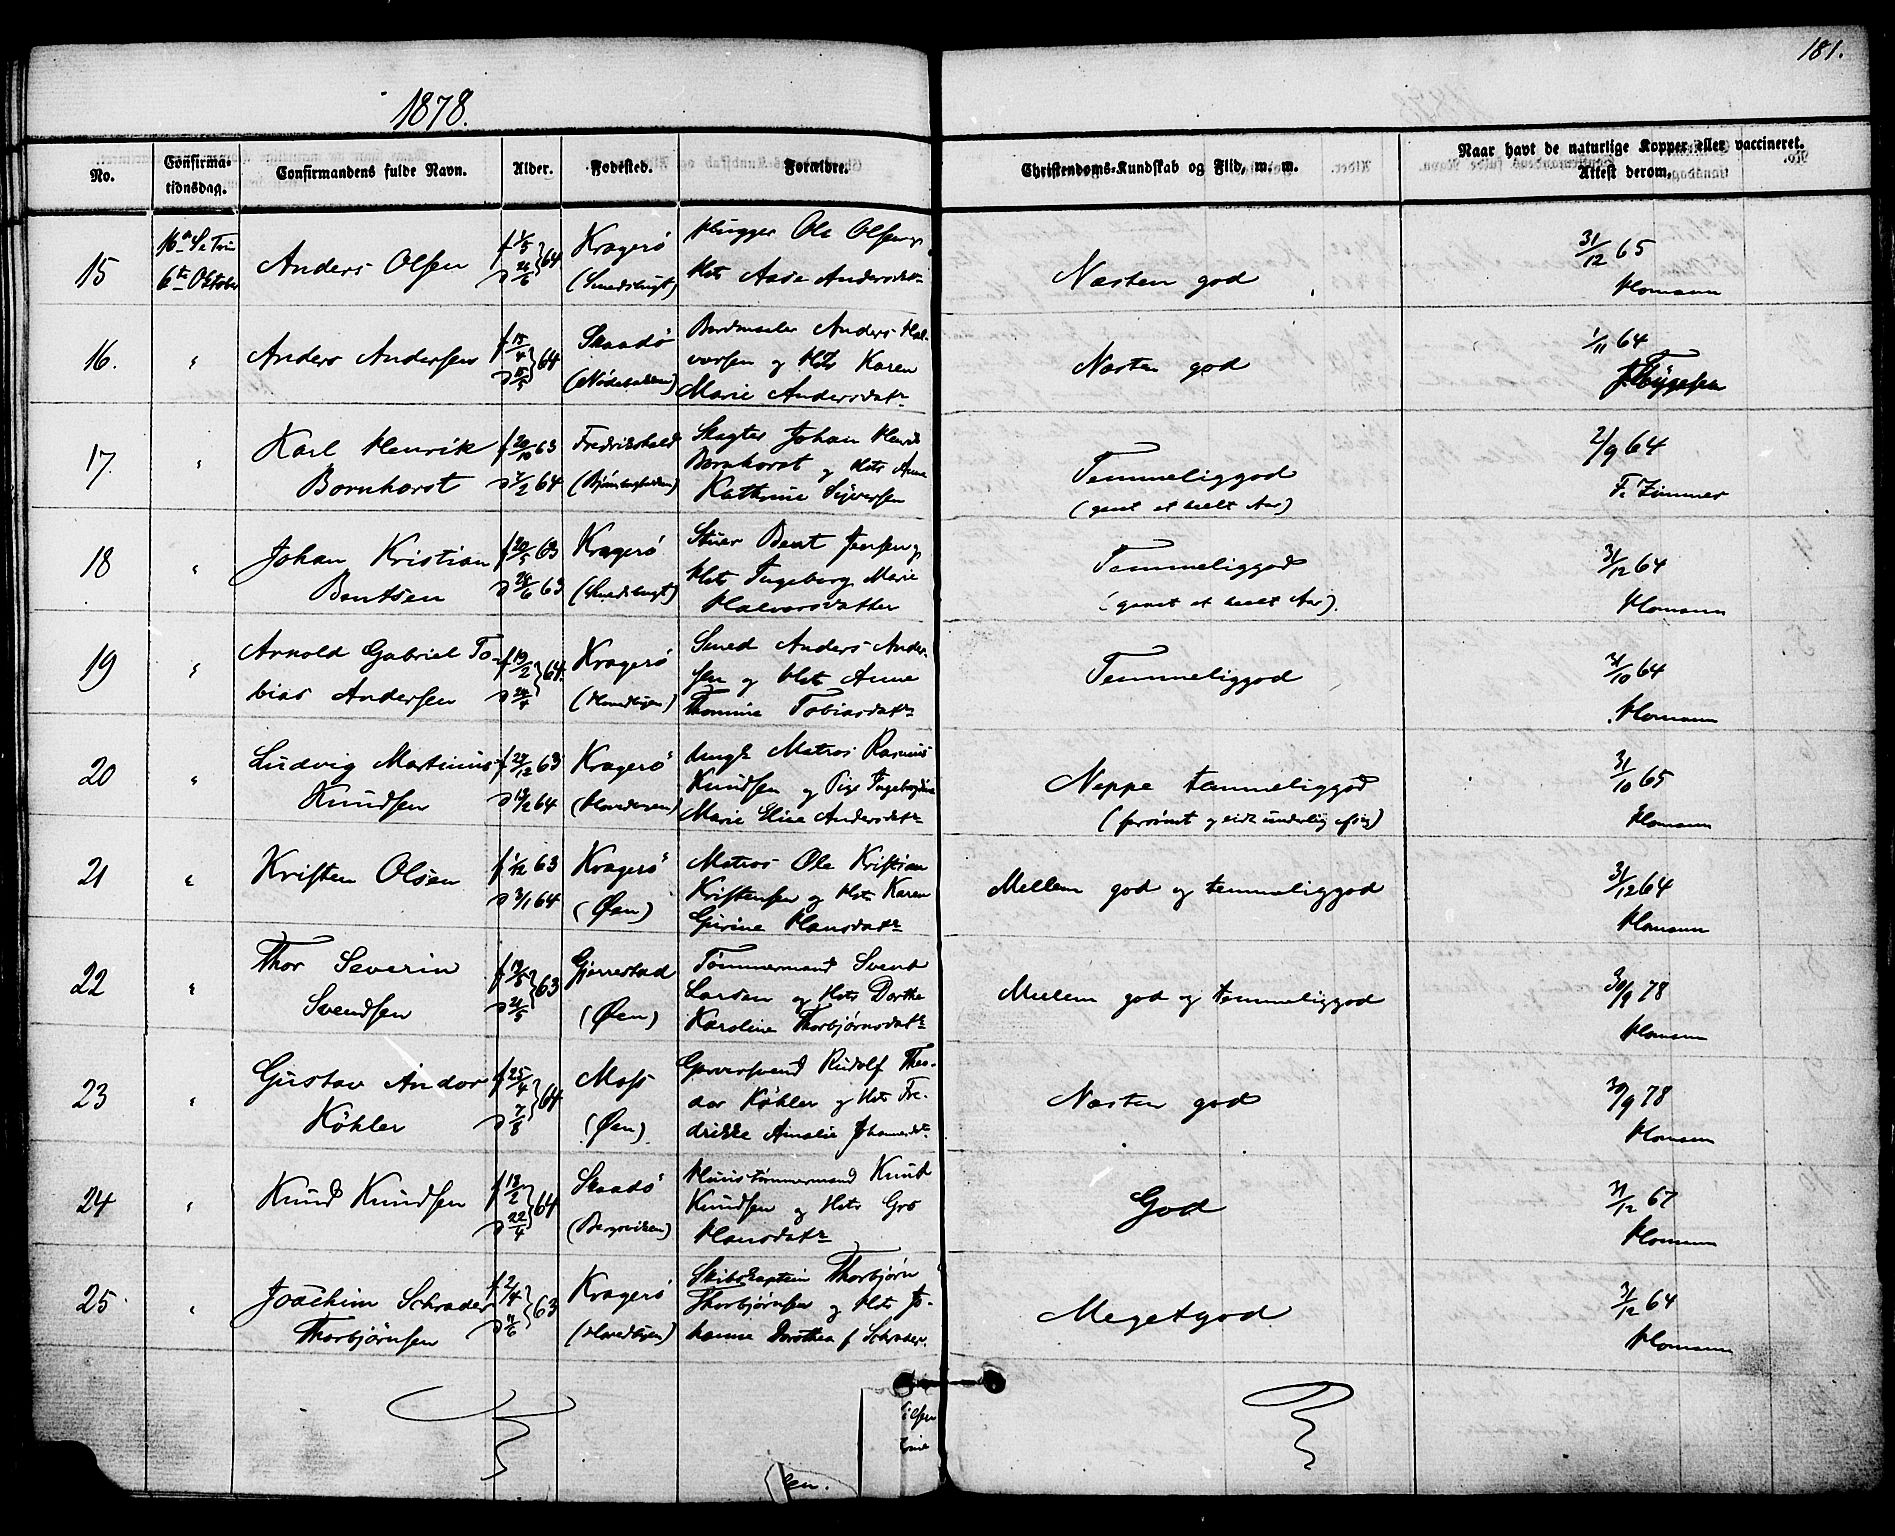 181.
1878.
No.
Confirma-
tionsdag.
Confirmandens fulde Navn.
Alder.
Fødested.
Forældre.
Christendoms-Kundskab og Flid, m. m.
Naar havt de naturlige Kopper eller vaccineret.
Attest derom.
15
16de S. e Trin
6te Oktober
Anders Olsen
f 1/5
64
Kragerö
Ole Olsen og
Hst Aase Andersdatr
Næsten god
31/12 65
Homann
16.
"
Anders Andersen
64
Skaadö
Anders Hal-
vorsen og Hst Karen
Marie Andersdatr
Næsten god
1/11 64
J. Thygesen
17.
"
Karl Henrik
Bornhorst
f 20/10 63
64
Fredrikshald
Slagter Johan Henrik
Bornhorst og Hst Anne
Kathrine Syversen
Temmeliggod
(gaaet et heelt Aar)
2/9 64
F. Zimmer
18
"
Johan Kristian
Bentsen
f 20/5 63
D 24/6 63
Kragerö
Bent Jensen og
Hst Ingeborg Marie
Halvorsdatter
Temmeliggod
(gaaet et heelt Aar).
31/12 64
Homann
19
"
Arnold Gabriel To-
bias Andersen
f 19/2
D 24/4
64.
Kragerö
Smed Anders Ander-
sen og Hst Anne
Thomine Tobiasdatr
Temmeliggod
31/10 64
Homann
20
"
Ludvig Martinius
Knudsen
63
64
Kragerö
Ungk. Matros Rasmus
Knudsen og Pige
Marie Elise Andersdatr
Neppe temmeliggod
31/10 65
Homann
21
"
Kristen Olsen
f 1/12 63
D 3/1 64
Kragerö
(Øen)
Matros Ole Kristian
Kristensen og Hst Karen
Gurine Hansdatr
Mellem god og temmeliggod
31/12 64
Homann
22
"
Thor Severin
Svendsen
63
Gjerrestad
(Øen)
Tömmermand Svend
Larsen og Hst Dorthe
Karoline Thorbjørnsdatr
Mellem god og temmeliggod
30/9 78
Homann
23
"
Gustav Andor
Köhler
f 25/4
D 7/8
64
Moss
(Øen)
Garversvend Rudolf Theo-
dor Köhler og Hst Fre-
drikke Amalie
Næsten god
30/9 78
Homann
24
"
Knud Knudsen
f 12/2
D 22/4
64
Skaadö
(Bergsviken)
Huustömmermand Knud
Knudsen og Hst Gro
Hansdatr
God
31/12 67
Homann
25
"
Joachim Schrader
Thorbjørnsen
f 2/4
63
Kragerö
Skibskaptein Thorbjørn
Thorbjørnsen og Hst Jo-
hanne Dorothea f Schrader.
Megetgod
31/12 64
Homann